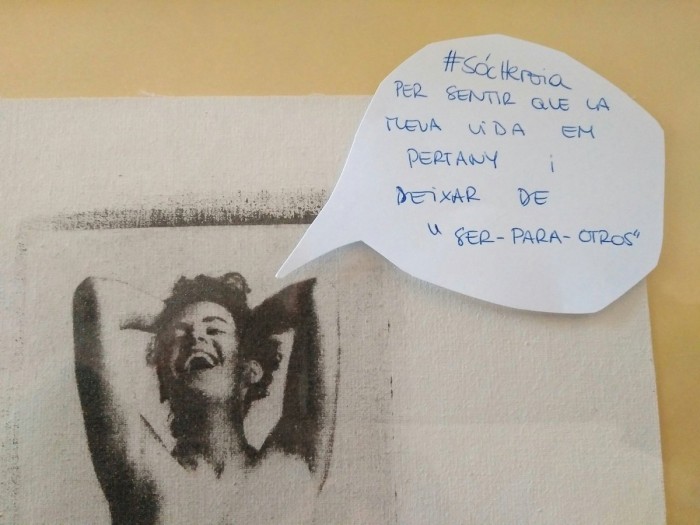 #SócHeroïa
PER SENTIR QUE LA
MEVA VIDA EM
PERTANY i
DEIXAR DE
"SER-PARA-OTROS"